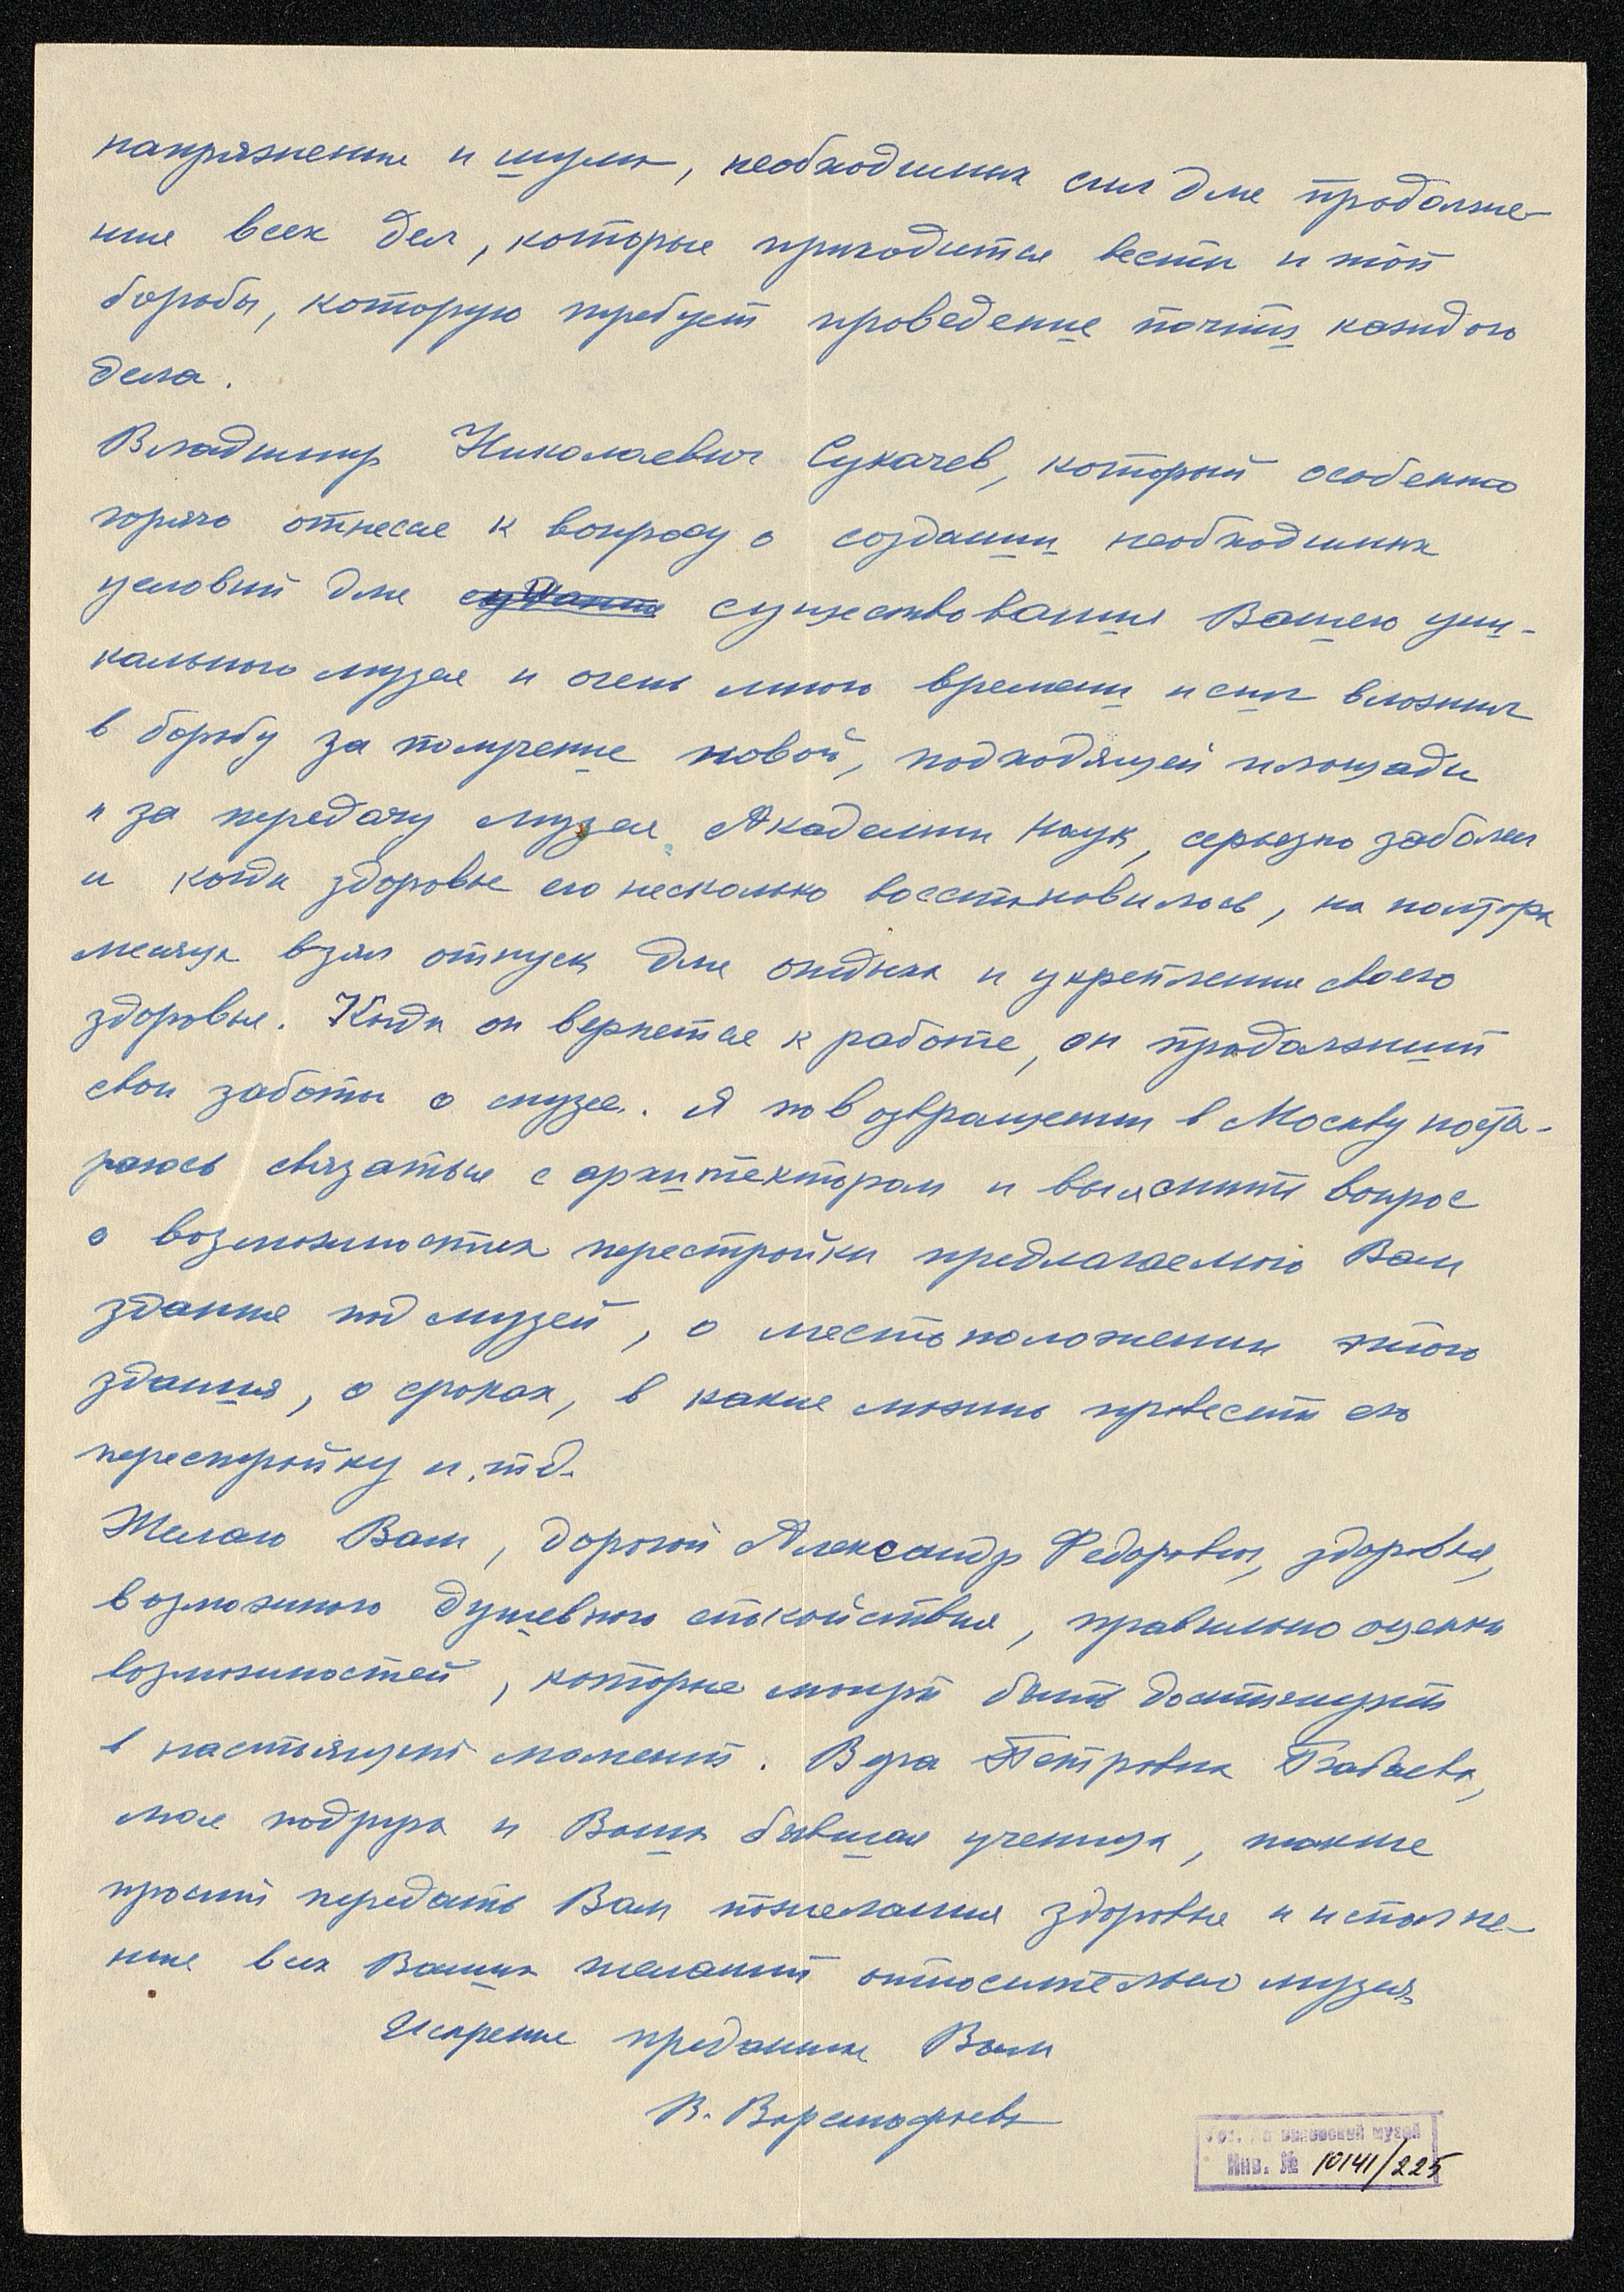 напряжения и шума, необходимых сил для продолже-
ния всех дел, которые приходится вести и той
борьбы, которую требует проведение почти каждого
дела.
Владимир Николаевич Сукачев, который особенно
горячо отнесся к вопросу о создании необходимых
условий для существования Вашего уни-
кального музея и очень много времени и сил вложил
в борьбу за получение новой, подходящей площади
и за передачу музея Академии Наук, серьезно заболел
и когда здоровье его несколько восстановилось, на полтора
месяца взял отпуск для отдыха и укрепления своего
здоровья. Когда он вернется к работе, он продолжит
свои заботы о музее. Я по возвращении в Москву поста-
раюсь связаться с архитектором и выяснить вопрос
о возможностях перестройки предлагаемого Вам
здания под музей, о местоположении этого
здания, о сроках, в какие можно провести его
перестройку и.т.д.
Желаю Вам, дорогой Александр Федорович, здоровья,
возможного душевного спокойствия, правильно оценки
возможностей, которые могут быть достигнуты
в настоящий момент. Вера Петровна
моя подруга и Ваша бывшая ученица, также
просит передать Вам пожелания здоровья и исполне-
ния всех Ваших желаний относительно музея.
Искренне преданная Вам
В. Варсонофьева
Гос. Дарвиновский музей
Инв. № 10141/225